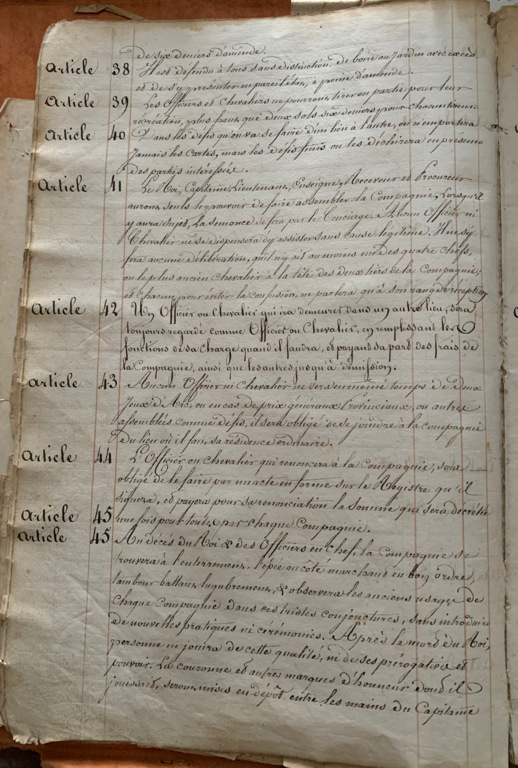 de six deniers d'amende.
Article 38 Il est défendu à tous sans distinction, de boire au Jardin avec excès
et de s'y présenter en pareil état, à peine d'amende.
Article 39 Les Officiers et Chevaliers ne pourront tirer en partie pour leur
récréation, plus haut que deux sols six deniers pour chacun tireur.
Article 40 Dans les défis qu'on va se faire d'un lieu à l'autre, on n'emportera
jamais les cartes, mais les défis finis on les déchirera en présence
des parties intéressées.
Article 41 Le Roi, Capitaine, Lieutenant, Enseigne, Receveur et Procureur
auront seuls le pouvoir de faire assembler la Compagnie, Lorsqu'il
y aura sujet, la semonce se fera par le Concierge. Aucun Officier ni
Chevalier ne se dispensera d'y assister sans cause légitime. Il ne s'y
fera aucune délibération, qu'il n'y ait au moins un des quatre chefs,
ou le plus ancien Chevalier à la tête des deux tiers de la Compagnie,
et chacun pour éviter la confusion, ne parlera qu'à son rang de réception
Article 42 Un Officier ou Chevalier qui ira demeurer dans un autre lieu, sera
toujours regardé comme Officier ou Chevalier, en remplissant les
fonctions de sa Charge quand il faudra, et payant sa part des frais de
la Compagnie, ainsi que les autres jusqu'à démission.
Article 43 Aucun Officier ni Chevalier ne sera en même temps de deux
Jeux d'Arc, ou en cas de prix généraux Provinciaux, ou autres
assemblées comme défis, il sera obligé de se joindre à la compagnie
du lieu où il fait sa résidence ordinaire.
Article 44 L'Officier ou chevalier qui renoncera à la Compagnie, sera
obligé de le faire par un acte en forme sur le Registre qu'il
signera, et payera pour sa renonciation la somme qui sera décrétée
Article 45 une fois pour toute, par chaque Compagnie.
Article 45 Au décès du Roi & des Officiers en chefs, la compagnie se
trouvera à l'enterrement, l'épée au coté marchant en bon ordre,
tambour battant lugubrement, & observera les anciens usages de
chaque compagnie dans ces tristes conjonctures, sans introduire
de nouvelles pratiques ni cérémonies. Après la mort du Roi,
personne ne jouira de cette qualité, ni de ses prérogatives et
pouvoir. La couronne et autres marques d'honneur dont il
jouissait, seront mises en dépôt entre les mains du Capitaine